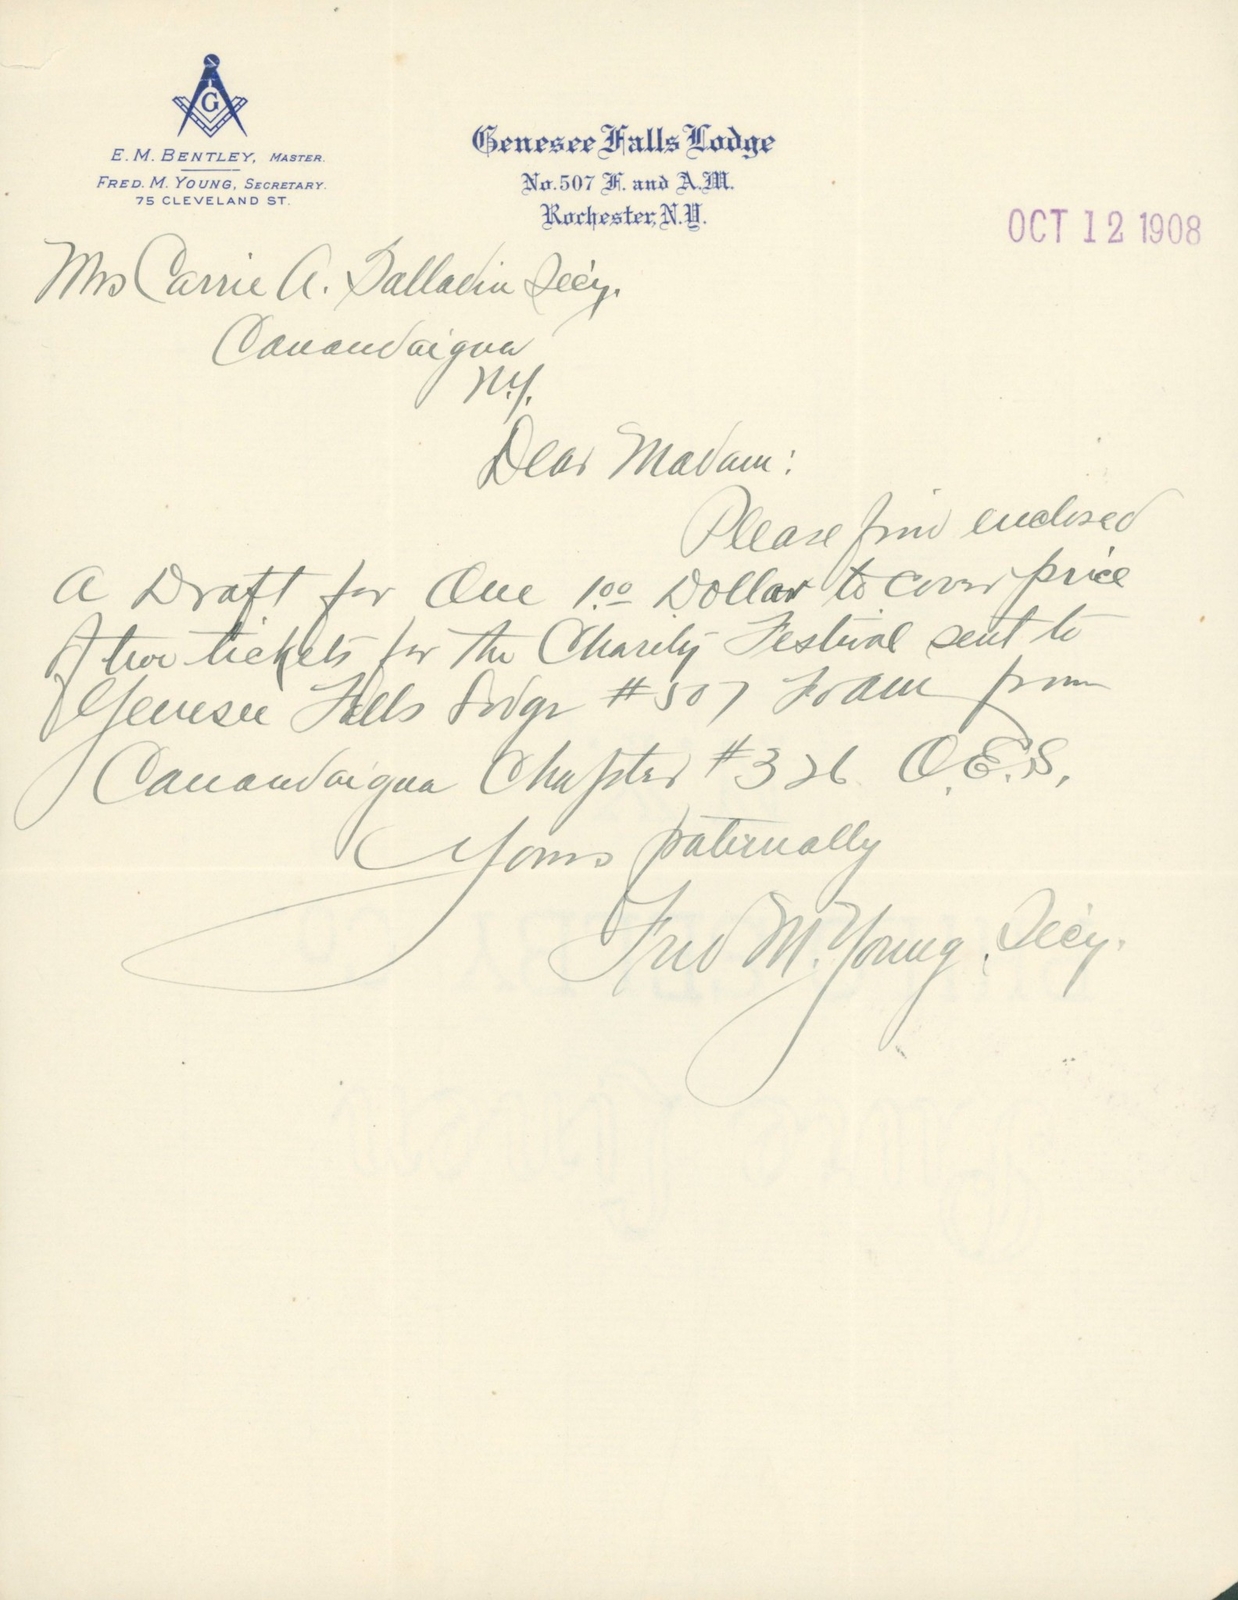 G
E. M. BENTLEY, MASTER.
FRED. M. YOUNG, SECRETARY.
75 CLEVELAND ST.
Genesee Falls Lodge
No. 507 F. and A.M.
Rochester, N.Y.
OCT 12 1908
Mrs Carrie A. Salladin Secy.
Canandaigua
N.Y.
Dear Madam:
Please find enclosed
A Draft for One 1.00 Dollar to cover price
of two tickets for the Charity Festival sent to
Genesee Falls Lodge #507 F&AM from
Canandaigua Chapter #326 O.E.S.
Yours fraternally
Fred M. Young, Secy.